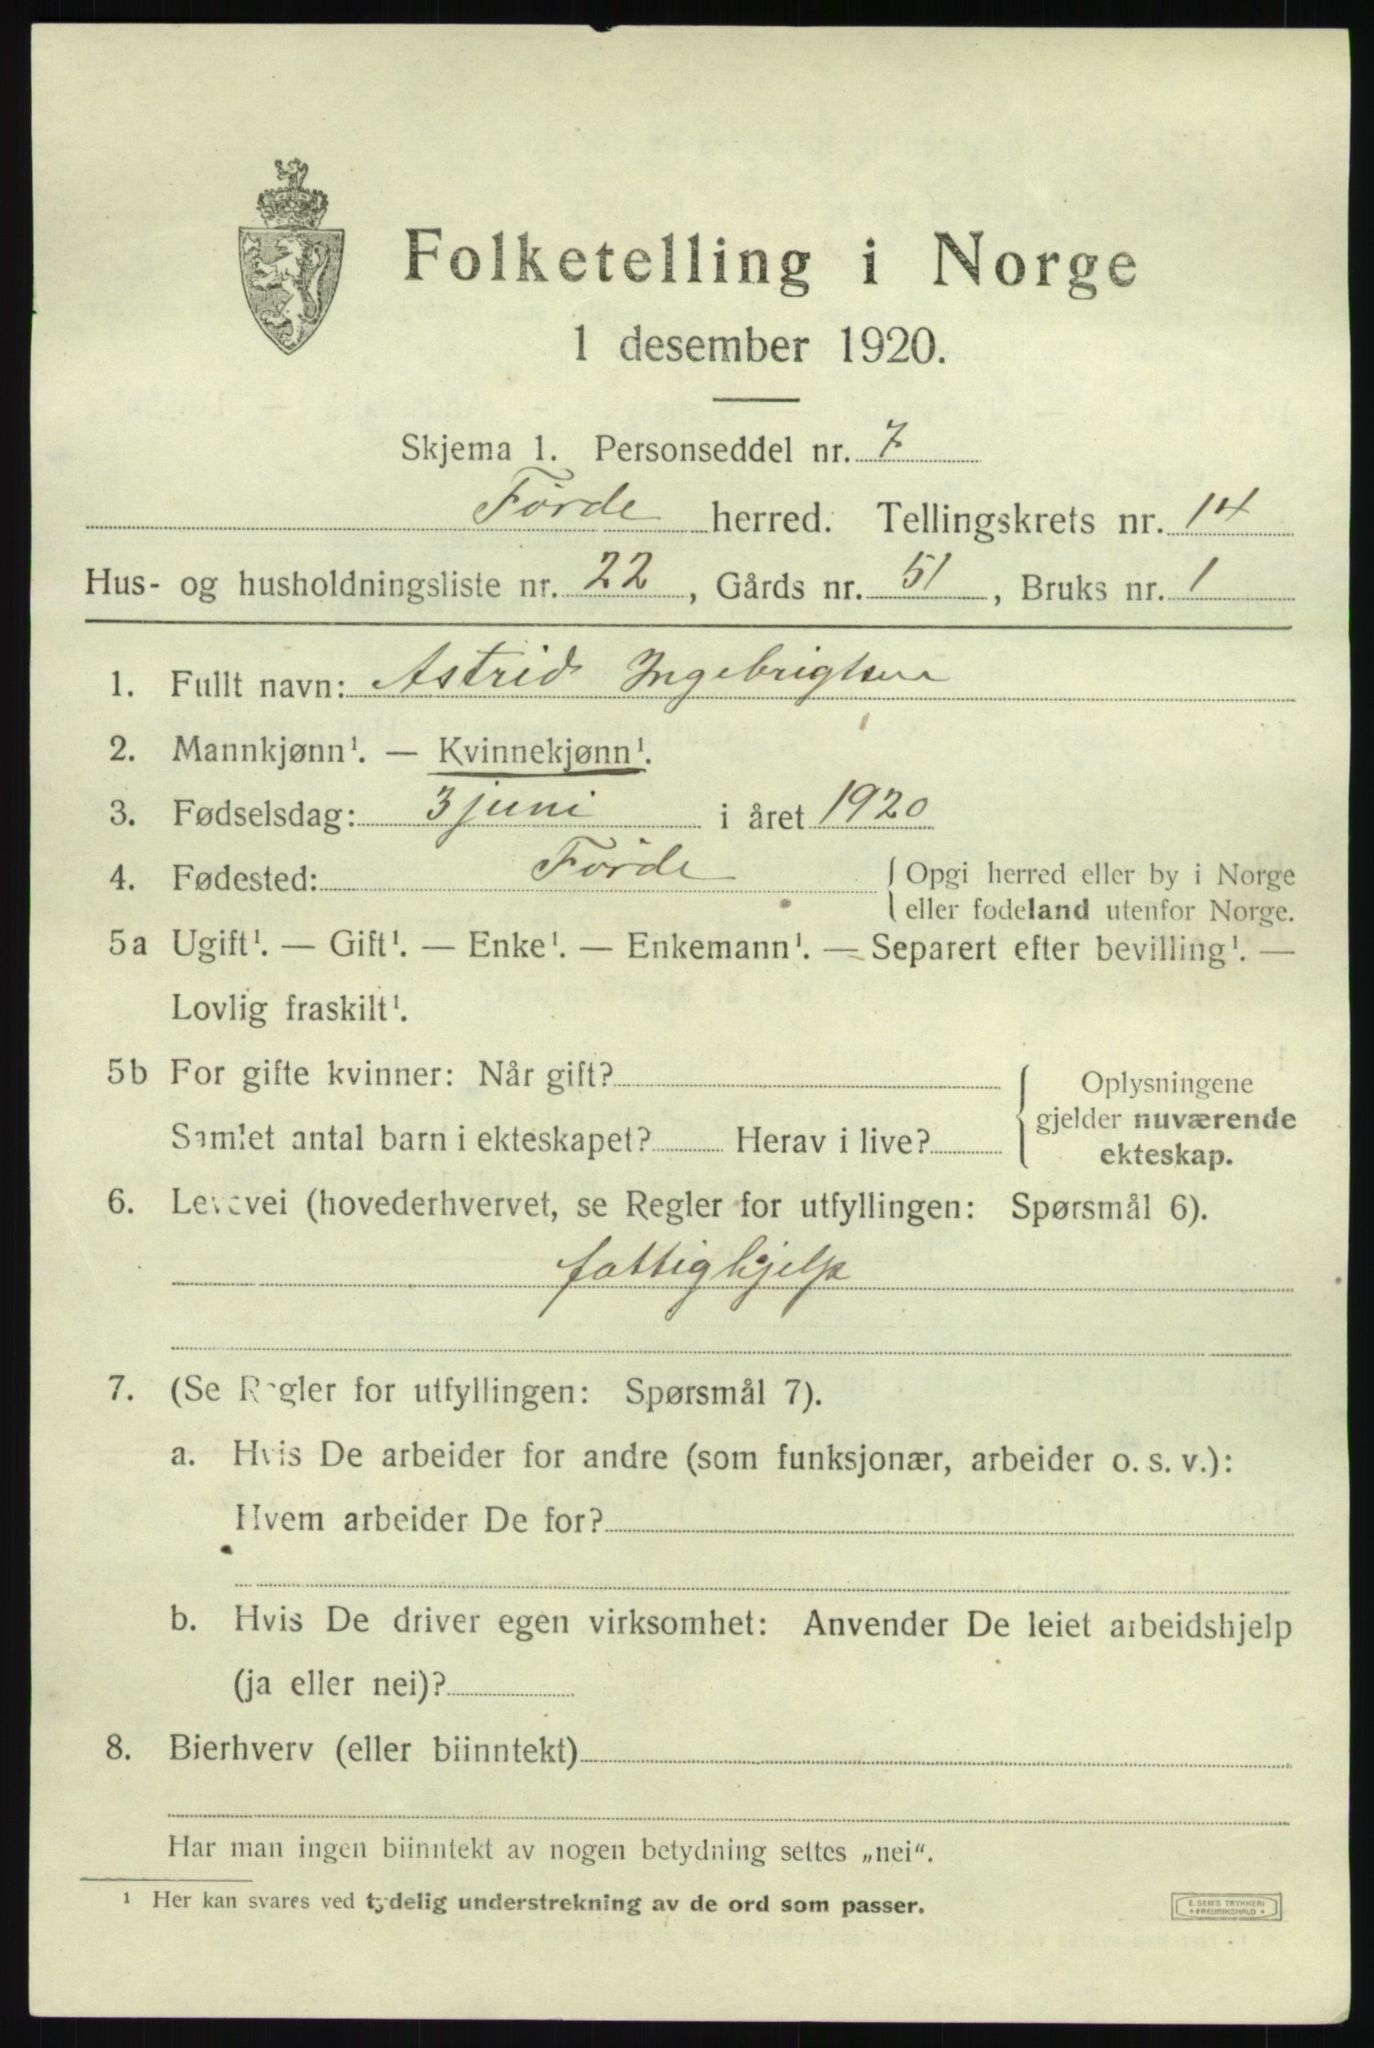 Folketelling i Norge
1 desember 1920.
Skjema 1. Personseddel nr. 7
Førde herred. Tellingskrets nr. 14
Hus- og husholdningsliste nr. 22, Gårds nr. 51, Bruks nr. 1
1. Fullt navn: Astrid Ingebrigtsen
2. Mannkjønn¹. — Kvinnekjønn¹.
3. Fødselsdag: 3 juni i året 1920
4. Fødested: Førde { Opgi herred eller by i Norge
eller fødeland utenfor Norge.
5a Ugift¹. — Gift¹. — Enke¹. — Enkemann¹. — Separert efter bevilling¹. —
Lovlig fraskilt¹.
5b For gifte kvinner: Når gift?
Samlet antal barn i ekteskapet? Herav i live?
{ Oplysningene
gjelder nuværende
ekteskap.
6. Levevei (hovederhvervet, se Regler for utfyllingen: Spørsmål 6).
fattighjelp
7. (Se Regler for utfyllingen: Spørsmål 7).
a. Hvis De arbeider for andre (som funksjonær, arbeider o. s. v.):
Hvem arbeider De for?
b. Hvis De driver egen virksomhet: Anvender De leiet arbeidshjelp
(ja eller nei)?
8. Bierhverv (eller biinntekt)
Har man ingen biinntekt av nogen betydning settes „nei“.
¹ Her kan svares ved tydelig understrekning av de ord som passer.
E. SEM'S TRYKKERI
* FREDRIKSHALD *